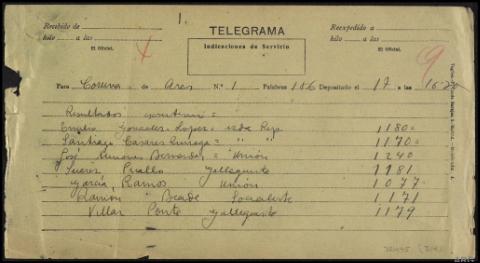 1.
Recibido de
hilo a las
El Oficial.
TELEGRAMA
Indicaciones de Servicio
Reexpedido a
hilo a las
El Oficial.
9
Para Coruña de Ares N.º 1 Palabras 106 Depositado el 17 a las
Resultados escrutinio =
Emilio Gonzalez Lopez = izda Rep 1180=
Santiago Casares Quiroga = " " 1170=
José Bernardez = Unión 1240
Suarez Picallo galleguista 1181
Garcia Ramos Unión 1077
Ramon Beade Socialista 1171
Villar Ponte galleguista 1179